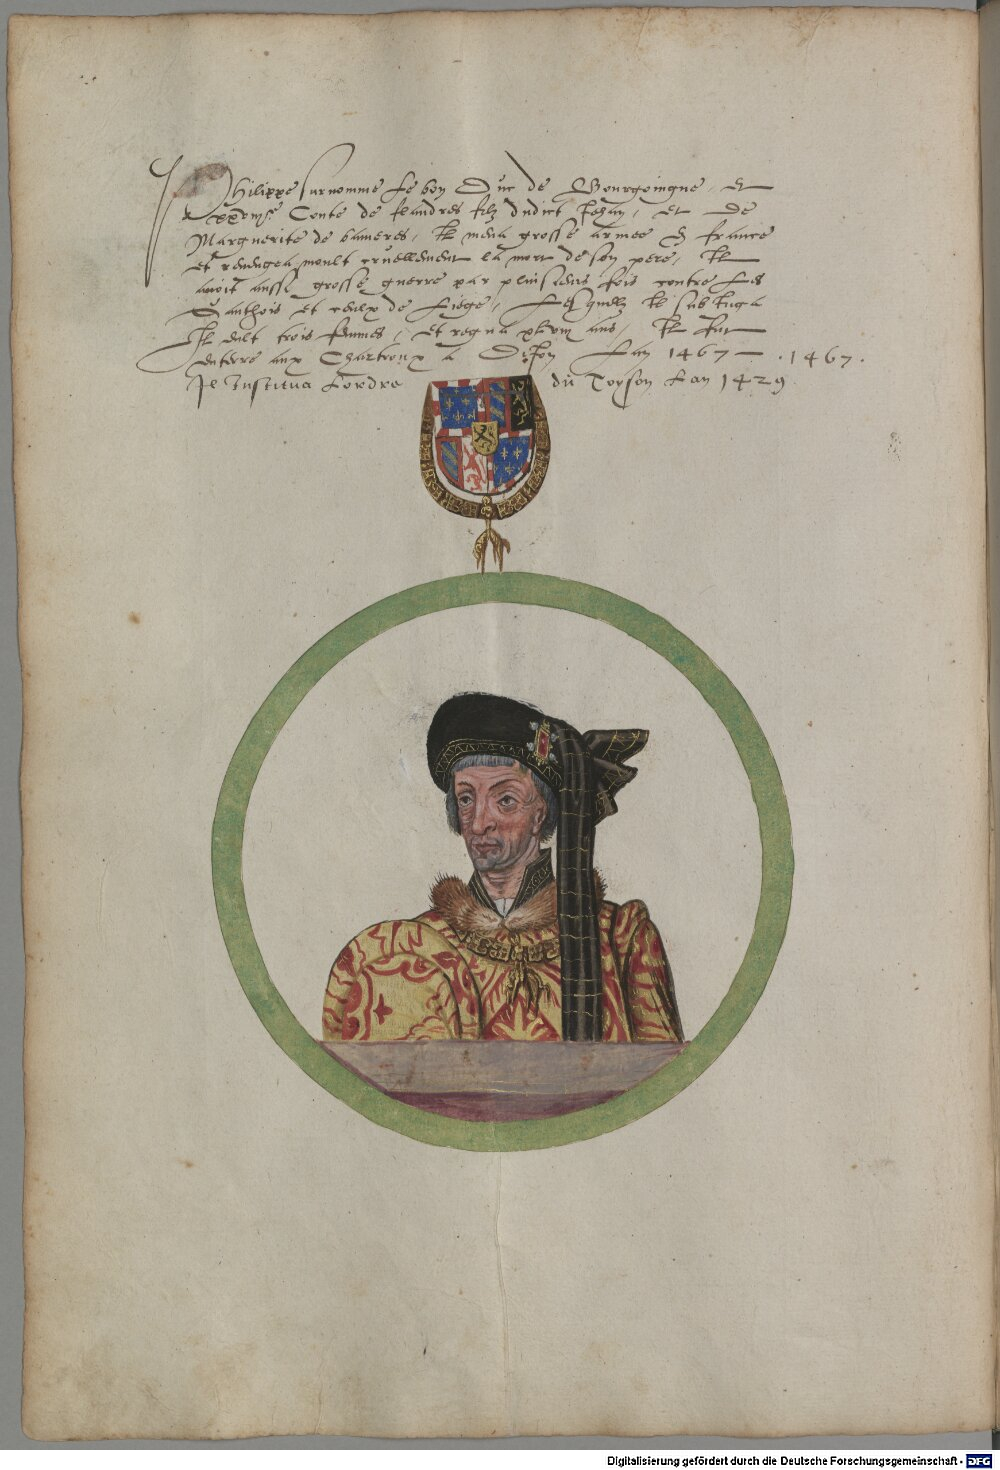 Philippe surnomme le bon Duc de Bourgoingne, et
xxvme Conte de flandres filz dudict Jehan, et de
Marguerite de bavieres, Il mena grosse armee en france
et vengea moult cruellement la mort de son pere, Il
avoit aussi grosse guerre par plusieurs fois contre les
Ganthois et ceulx de Liege, Lesquelz Il subiuga
Il eult trois femmes, et regna xlvm ans, Il fut
enterre aux Chartroux a Diion Lan 1467 - .1467.
Il Institua Lordre du Toyson Lan 1429
Digitalisierung gefördert durch die Deutsche Forschungsgemeinschaft - DFG